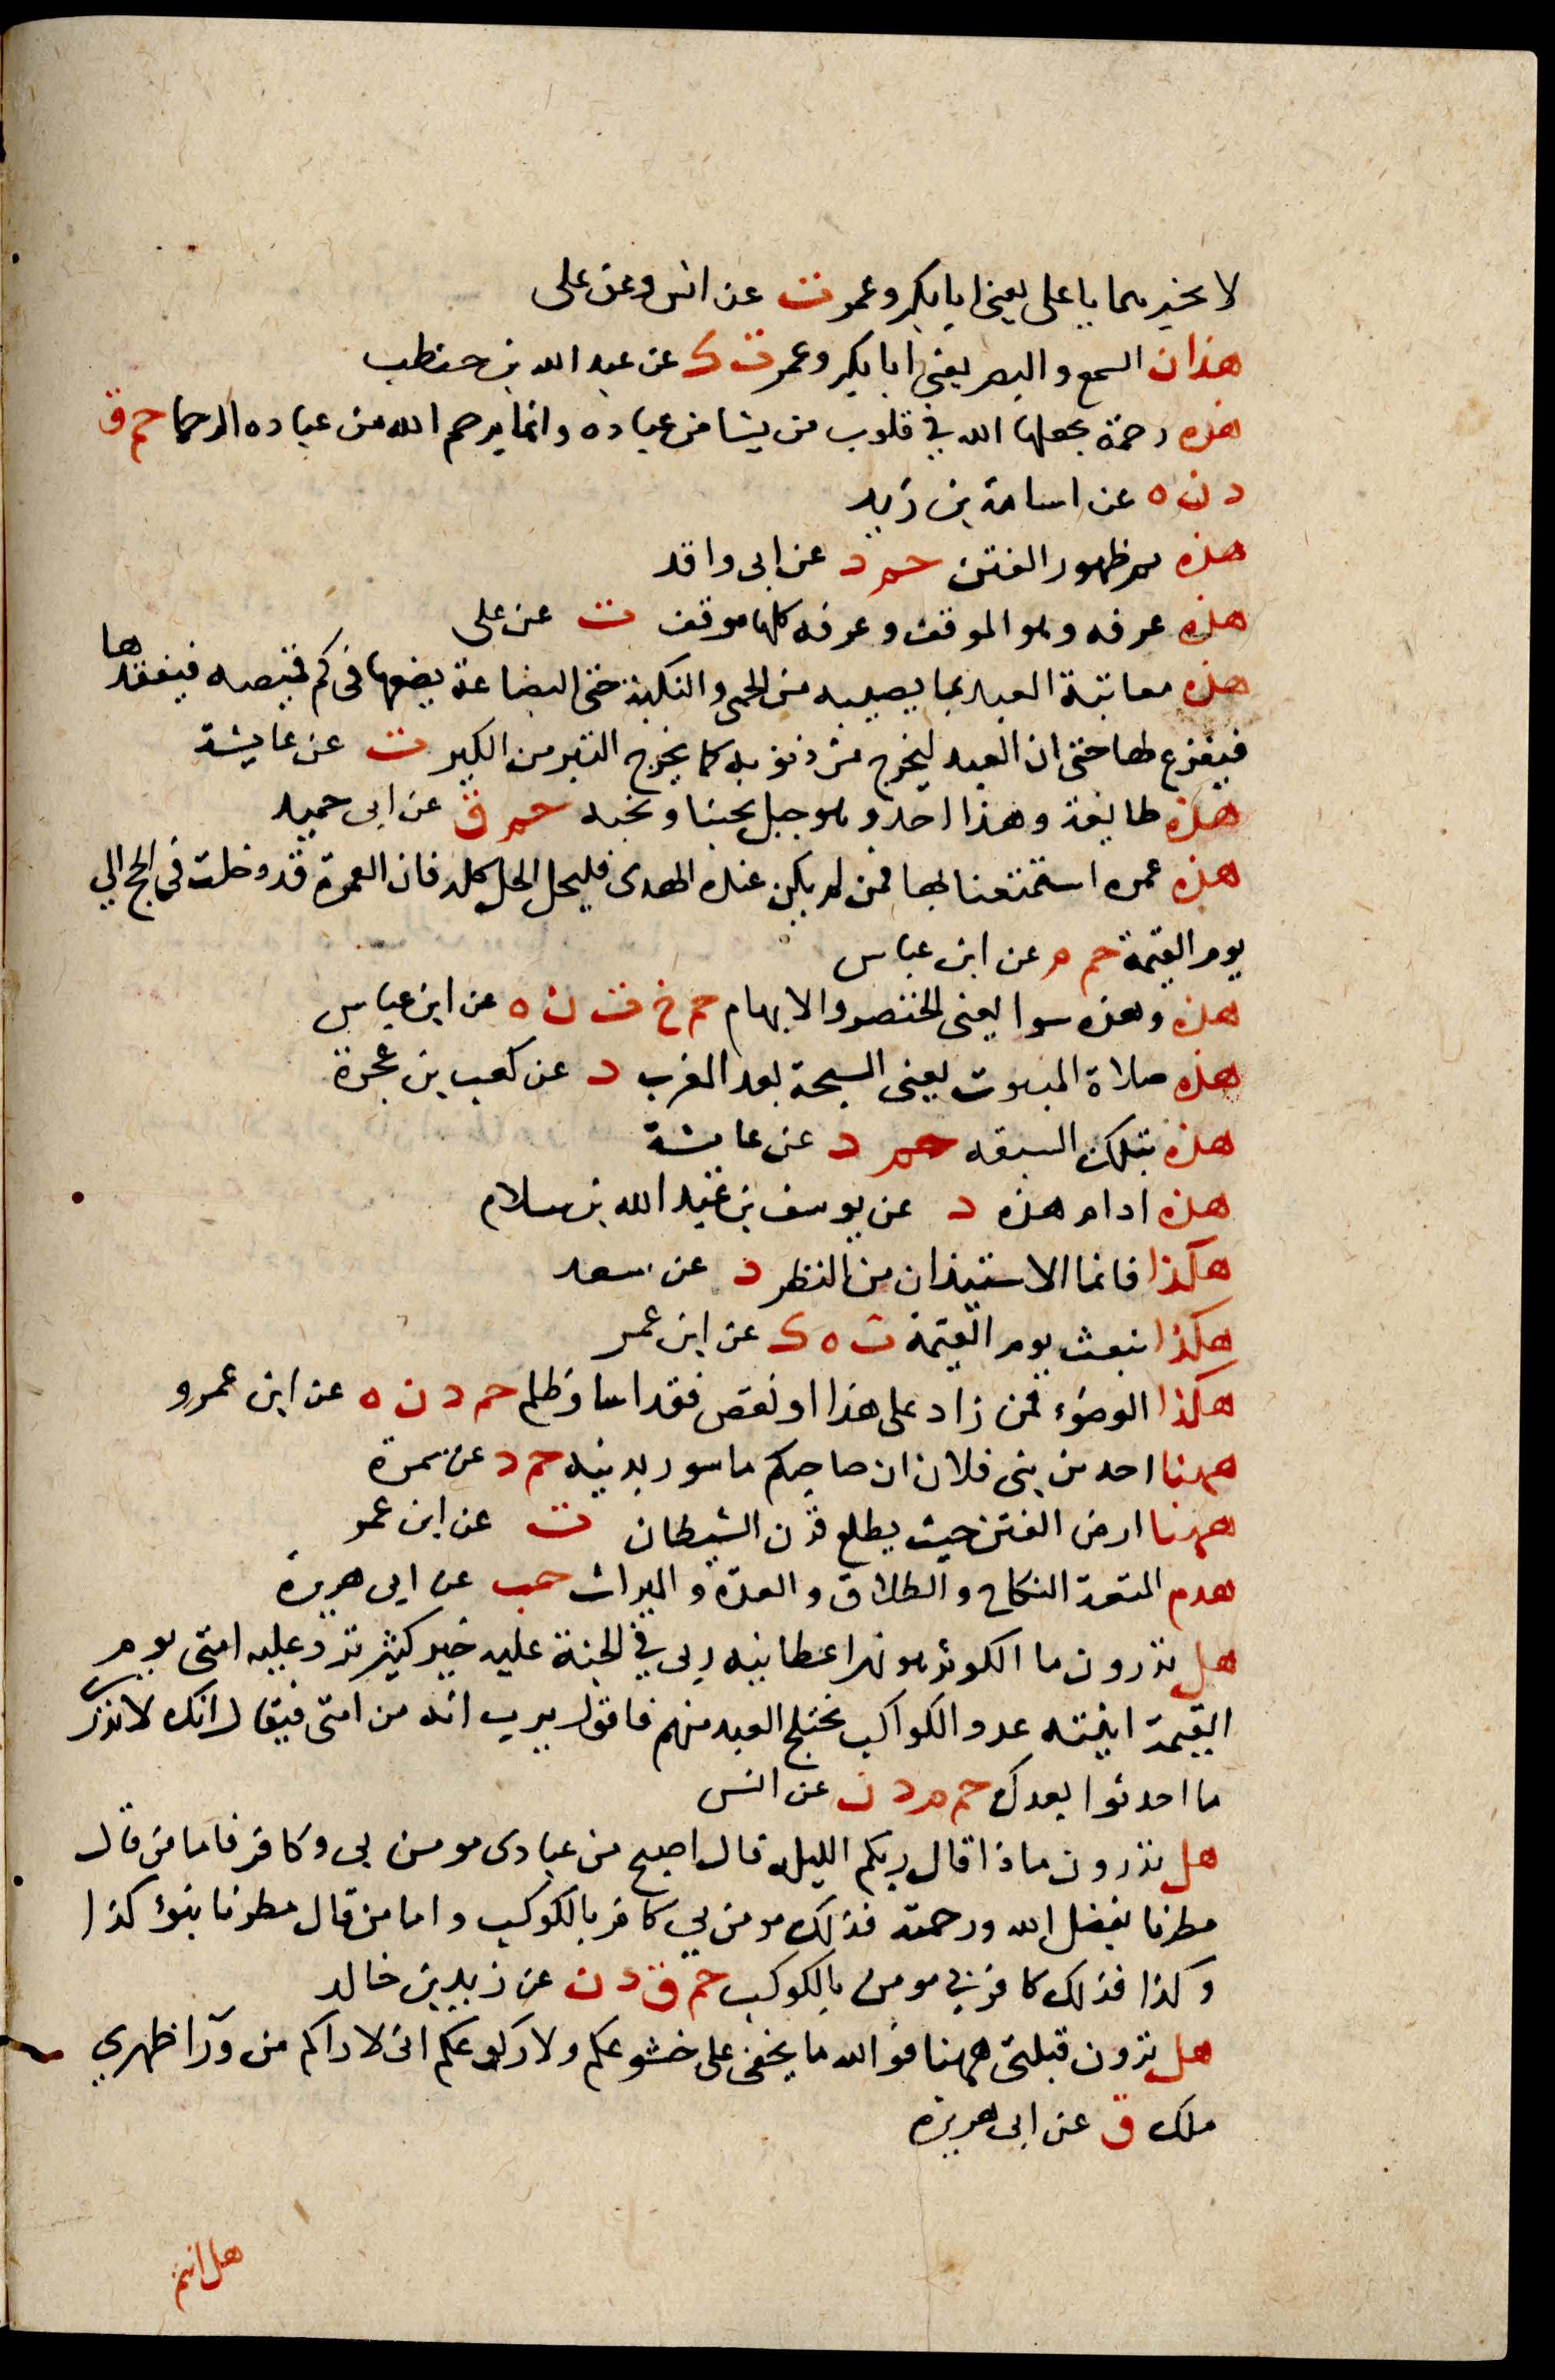 لا تخبرهما يا على يعنى ابا بكر وعمر ت عن انس وعن على
هذان السمع والبصر يعنى ابا بكر وعمر ت ك عن عبد الله بن حنطب
هذه رحمة يجعلها الله فى قلوب من يشا من عباده وانما يرحم الله من عباده الرحما حم ق
د ن ه عن اسامة بن زيد
هذه ثم ظهور الفتن حم د عن ابى واقد
هذه عرفه وهو الموقف وعرفه كلها موقف ت عن على
هذه معاتبة العبد بما يصيبه من الحمى والنكبة حتى البضاعة يضعها فى كم قميصه فيفقدها
فيفزع لها حتى ان العبد ليخرج من ذنوبه كما يخرج التبر من الكير ت عن عايشة
هذه طابة وهذا احد وهو جبل يحبنا ونحبه حم ق عن ابى حميد
هذه عمره استمتعنا بها فمن لم يكن عنده الهدى فليحل الحل كله فان العمرة قد دخلت فى الحج الي
يوم القيمة حم م عن ابن عباس
هذه وهذه سوا يعنى الخنصر والابهام حم خ ت ن ه عن ابن عباس
هذه صلاة البيوت يعنى السبحة بعد المغرب د عن كعب بن عجرة
هذه بتلك السبقه حم د عن عايشة
هذه ادام هذه د عن يوسف بن عبد الله بن سلام
هكذا فانما الاستيذان من النظر د عن سعد
هكذا نبعث يوم القيمة ت ه ك عن ابن عمر
هكذا الوضوء فمن زاد على هذا او نقص فقد اسا وظلم حم د ن ه عن ابن عمرو
ههنا احد من بنى فلان ان صاحبكم ماسور بدينه حم د عن سمرة
ههنا ارض الفتن حيث يطلع قرن الشيطان ت عن ابن عمر
هدم المتعة النكاح والطلاق والعدة والميراث حب عن ابى هريرة
هل تدرون ما الكوثر هو نهر اعطانيه ربى فى الجنة عليه خير كثير ترد عليه امتى يوم
القيمة انيته عدد الكواكب يختلج العبد منهم فاقول يرب انه من امتى فيقال انك لا تدرى
ما احدثوا بعدك حم م د ن عن انس
هل تدرون ماذا قال ربكم الليله قال اصبح من عبادى مومن بى وكافر فاما من قال
مطرنا بفضل الله ورحمته فذلك مومن بي كافر بالكوكب واما من قال مطرنا بنوء كذا
وكذا فذلك كافر بي مومن بالكوكب حم ق د ن عن زيد بن خالد
هل ترون قبلتى ههنا فوالله ما يخفى على خشوعكم ولا ركوعكم انى لاراكم من ورآ ظهري
ملك ق عن ابى هريره
هل انتم